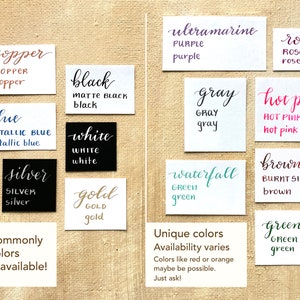 copper
COPPER
copper
blue
METALLIC BLUE
metallic blue
silver
SILVER
silver
black
MATTE BLACK
black
white
WHITE
white
gold
GOLD
gold
commonly
colors
available!
ultramarine
PURPLE
purple
gray
GRAY
gray
waterfall
GREEN
green
ROS
rose
hot p
HOT PINK
hot pink
brown
BURNT S
brown
green
GREEN
green
Unique colors
Availability varies
Colors like red or orange
maybe be possible.
Just ask!